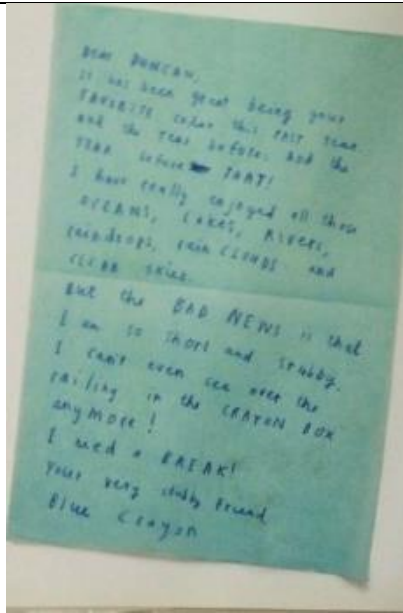 DEAR DUNCAN,
It has been great being your
FAVORITE color this PAST year.
and the year before. And the
YEAR before THAT!
I have really enjoyed all those
OCEANS, LAKES, RIVERS,
raindrops, rain CLOUDS and
CLEAR skies.
But the BAD NEWS is that
I am so short and stubby,
I can't even see over the
railing in the CRAYON BOX
anymore!
I need a BREAK!
Your very stubby friend
Blue Crayon